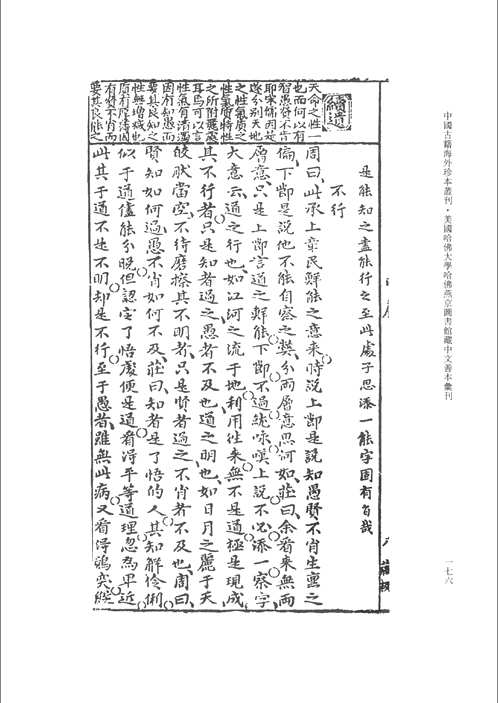 中國古籍海外珍本叢刊・美國哈佛大學哈佛燕京圖書館藏中文善本彙刊
一七六
是能知之盡能行之至此處子思添一能字固有旨哉
不行
周曰此承上章民鮮能之意來時說上節是說知愚賢不肖生稟之
偏下節是說他不能自察之獘分兩層意思何如莊曰余看來無兩
層意只是上節言道之鮮能下節不過統咏嘆上說不必添一察字
大意云道之行也如江河之流于地利用徃來無不是道極是現成
其不行者只是知者過之愚者不及也道之明也如日月之麗于天
皎狀當空不待磨擦其不明者只是賢者過之不肖者不及也周曰
賢知如何過愚不肖如何不及莊曰知者是了悟的人其知解伶俐
似于道儘能分曉但認定了悟處便是道看淂平等道理忽為卑近
此其于道不是不明却是不行至于愚者雖無此病又看淂鶻突
續遺
天命之性一
也而何以有
智愚賢不肖
耶宋儒因是
遂分別天地
之性氣質之
性氣質特性
之所附麗處
耳烏可以言
性氣有清濁
因有知愚而
要其良知之
性無增減也
質有厚薄因
有賢不肖而
要其良能之